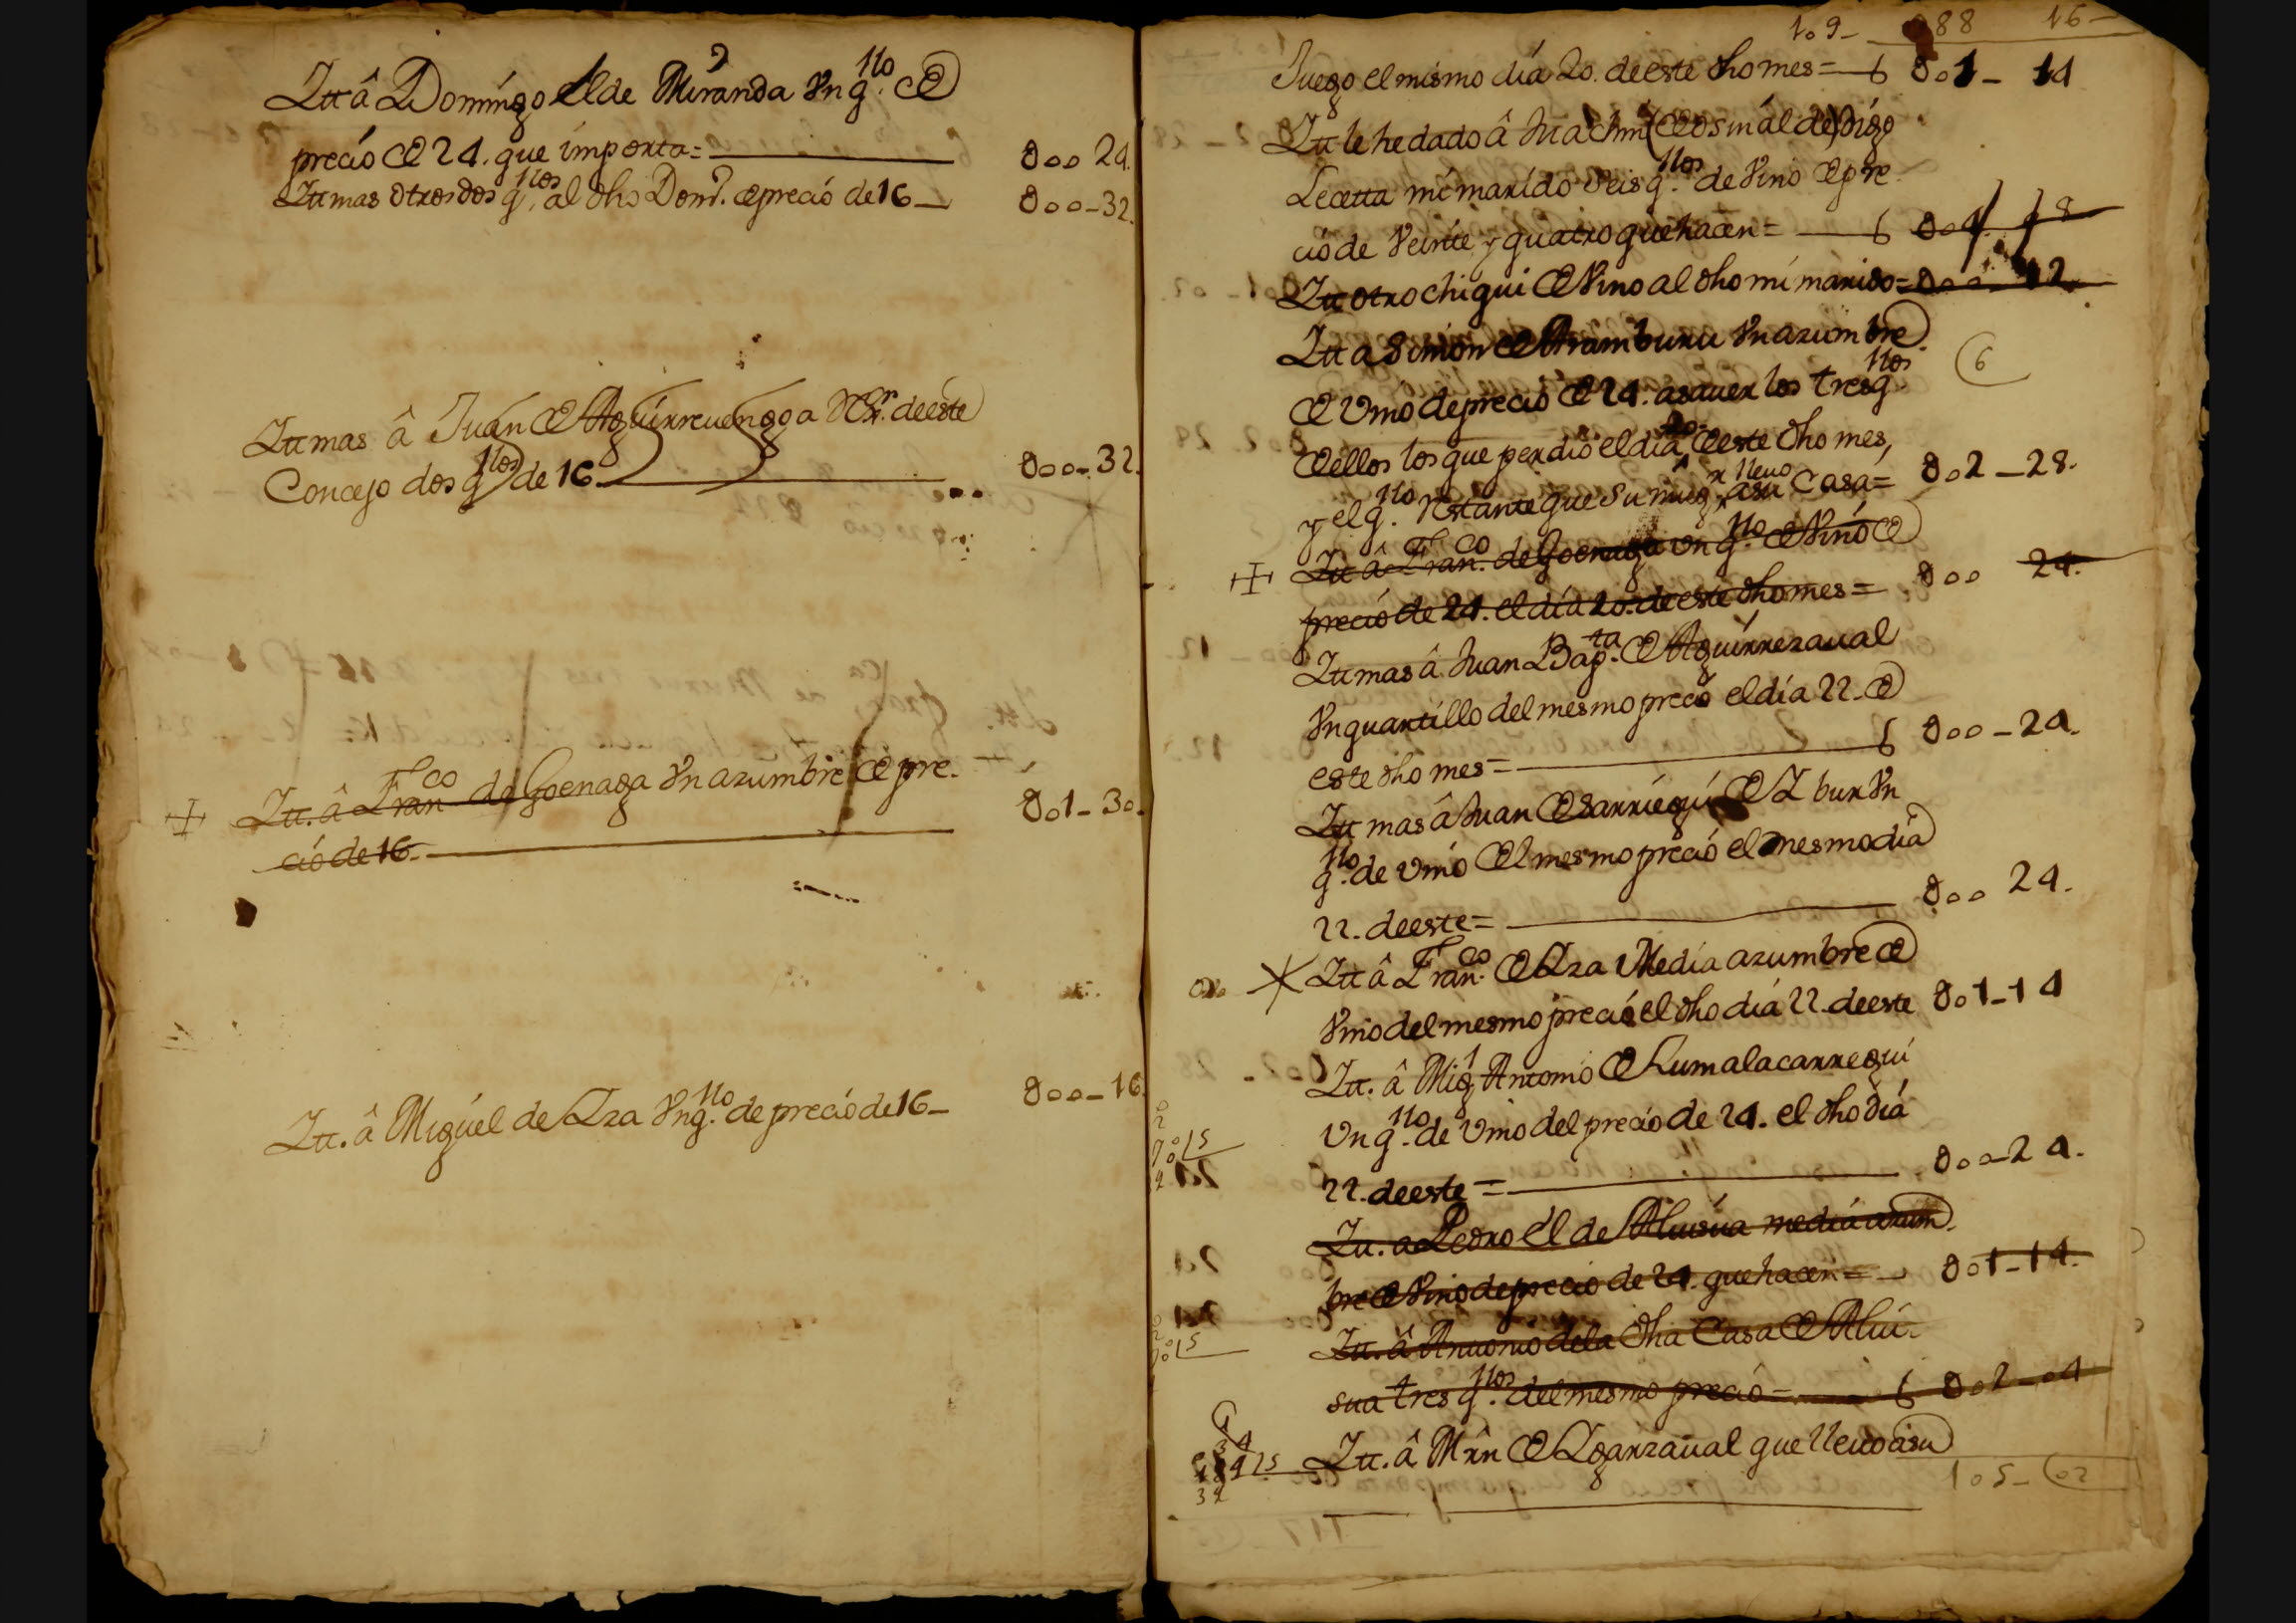 Itt â Domingo el de Miranda Vn q.llo de
precio de 24. que importa= 000 24.
Itt mas otros dos q.llos al dho Dom.o de precio de 16 000-32.
Itt mas â Juan de Aguirreuengoa de este
Concejo dos q.llos de 16 000-32.
Itt. â Fran.co de Goenaga Vn azumbre de pre-
cio de 16. 001-30.
Itt. â Miguel de Iza Vn q.llo de precio de 16 000-16
109- 088 16-
Juego el mismo dia 20. de este dho mes= 001-14
Itt le he dado â digo
Lecetta mi marido seis q.llos de Vino de pre
cio de Veinte y quatro que hacen=
Itt otro chiqui de Vino al dho mi marido=
Itt a Simon de Aramburu Vn azumbre
de Vino de precio de 24. asauer los tres q.llos
de ellos los que perdio el dia 20. de este dho mes,
y el q.llo restante que su mug.r lleuo asu Casa= 002-28.
6
Itt â Fran.co de Goenaga Vn q.llo de Vino de
precio de 24. el dia 20. de este dho mes= 000 24.
Itt mas â Juan Bap.ta de Aguirrezaual
Vn quartillo del mesmo precio el dia 22. de
este dho mes= 000-24.
Itt mas â Juan de Sarriegui de Ibur Vn
q.llo de Vino del mesmo precio el mesmo dia
22. de este= 000 24.
Itt â Fran.co de Iza Media azumbre de
Vino del mesmo precio el dho dia 22. de este 001-14
Itt. â Mig.l Antonio de Zumalacarregui
Vn q.llo de Vino del precio de 24. el dho dia
22. de este= 000-24.
Itt. a Pedro el de Aluisua media azum
bre de Vino de precio de 24. que hacen= 001-14.
Itt. â Antonio de la dha Casa de Alui-
sua tres q.llos del mesmo precio= 002-04
Itt. â Mrn de Igarzaual que lleuo asu
105-02